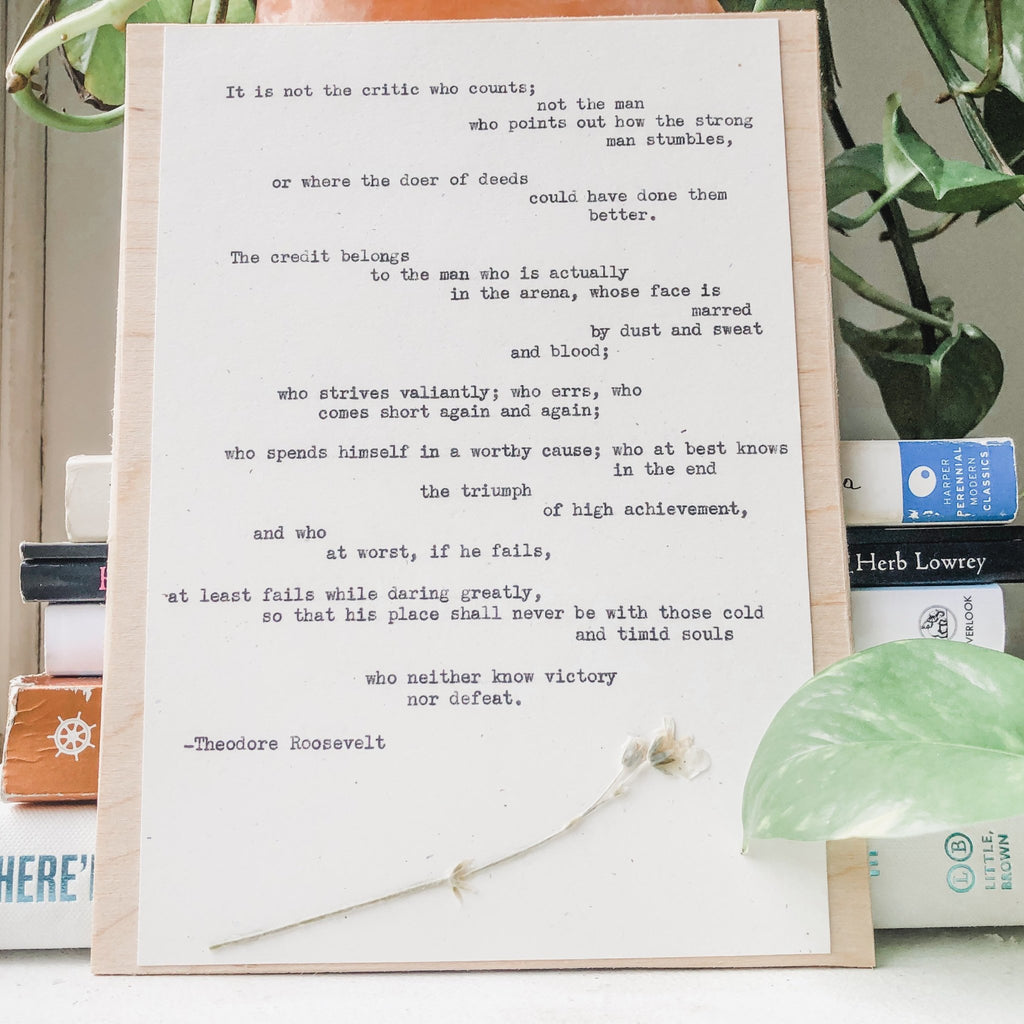 It is not the critic who counts;
not the man
who points out how the strong
man stumbles,
or where the doer of deeds
could have done them
better.
The credit belongs
to the man who is actually
in the arena, whose face is
marred
by dust and sweat
and blood;
who strives valiantly; who errs, who
comes short again and again;
who spends himself in a worthy cause; who at best knows
in the end
the triumph
of high achievement,
and who
at worst, if he fails,
at least fails while daring greatly,
so that his place shall never be with those cold
and timid souls
who neither know victory
nor defeat.
-Theodore Roosevelt
HARPER
PERENNIAL
MODERN
CLASSICS
Herb Lowrey
VERLOOK
HERE'
L B
LITTLE,
BROWN